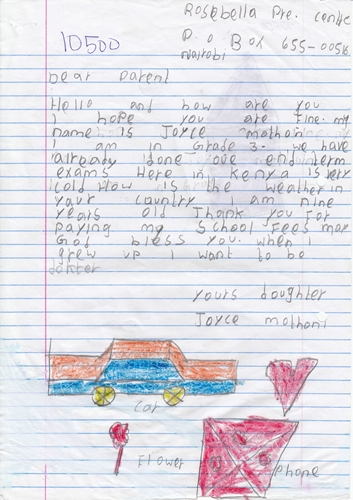 Rosebella Pre. centre
10500
P.o Box 655-00516
Nairobi
Dear Parent
Hello and how are you
I hope you are fine. my
name is Joyce mothoni
I am in Grade 3. we have
already done our end term
exams Here in Kenya is very
cold How is the weather in
your country I am nine
years old Thank you for
paying my School Fees may
God bless you. when I
grew up I want to be
doktor
yours doughter
Joyce mothoni
car
Flower
Phone